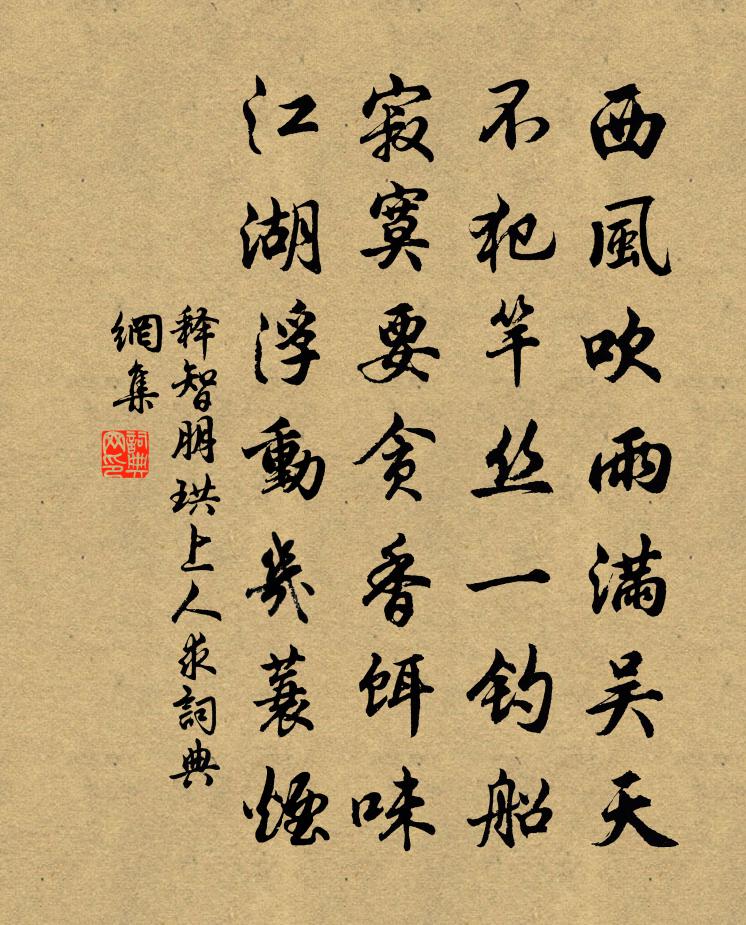 西風吹雨滿吴天
不犯竿丝一钓船
寂寞要贪香饵味
江湖浮動幾蓑煙
释智朋珙上人求詞典
網集
詞典
网印